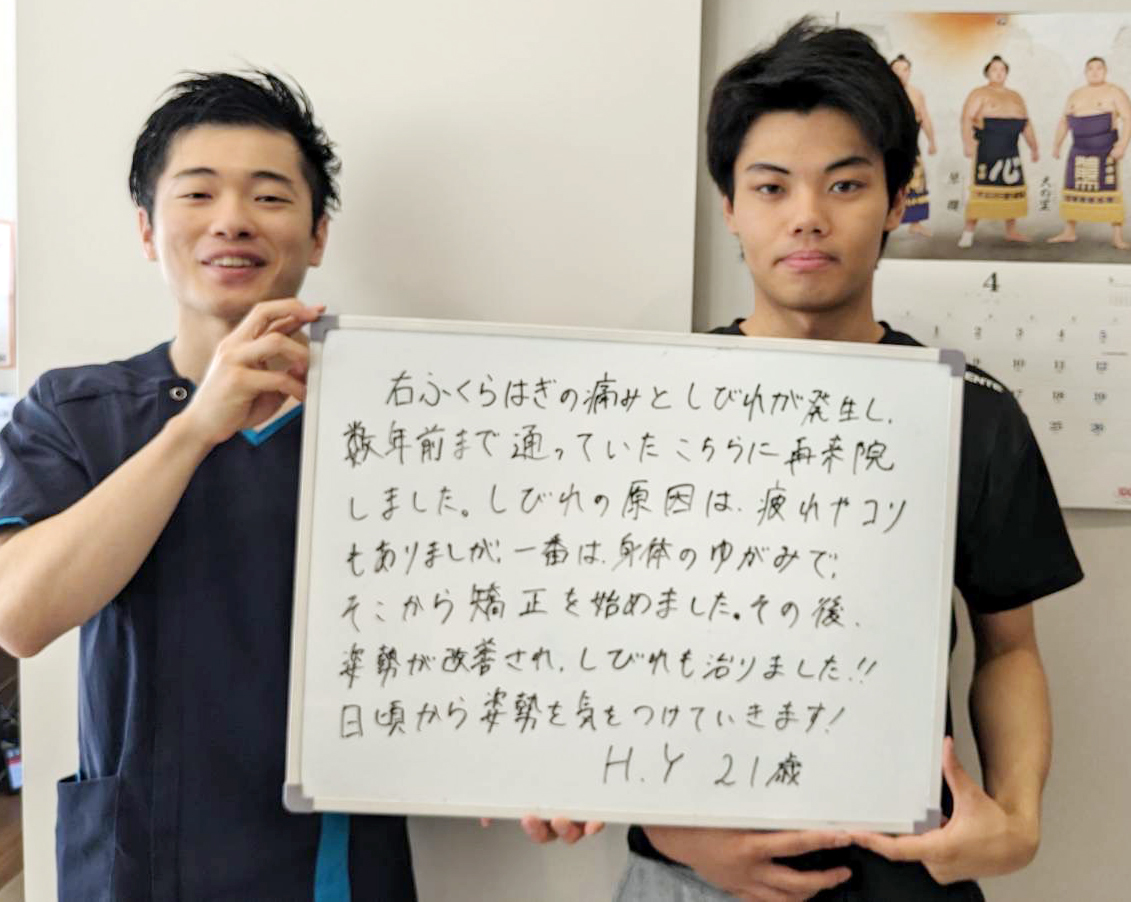 右ふくらはぎの痛みとしびれが発生し、
数年前まで通っていたこちらに再来院
しました。しびれの原因は、疲れやコリ
もありましが、一番は、身体のゆがみで、
そこから矯正を始めました。その後、
姿勢が改善され、しびれも治りました!!
日頃から姿勢を気をつけていきます!
H.Y 21歳
心
大の里
4
1 2 3 4 5